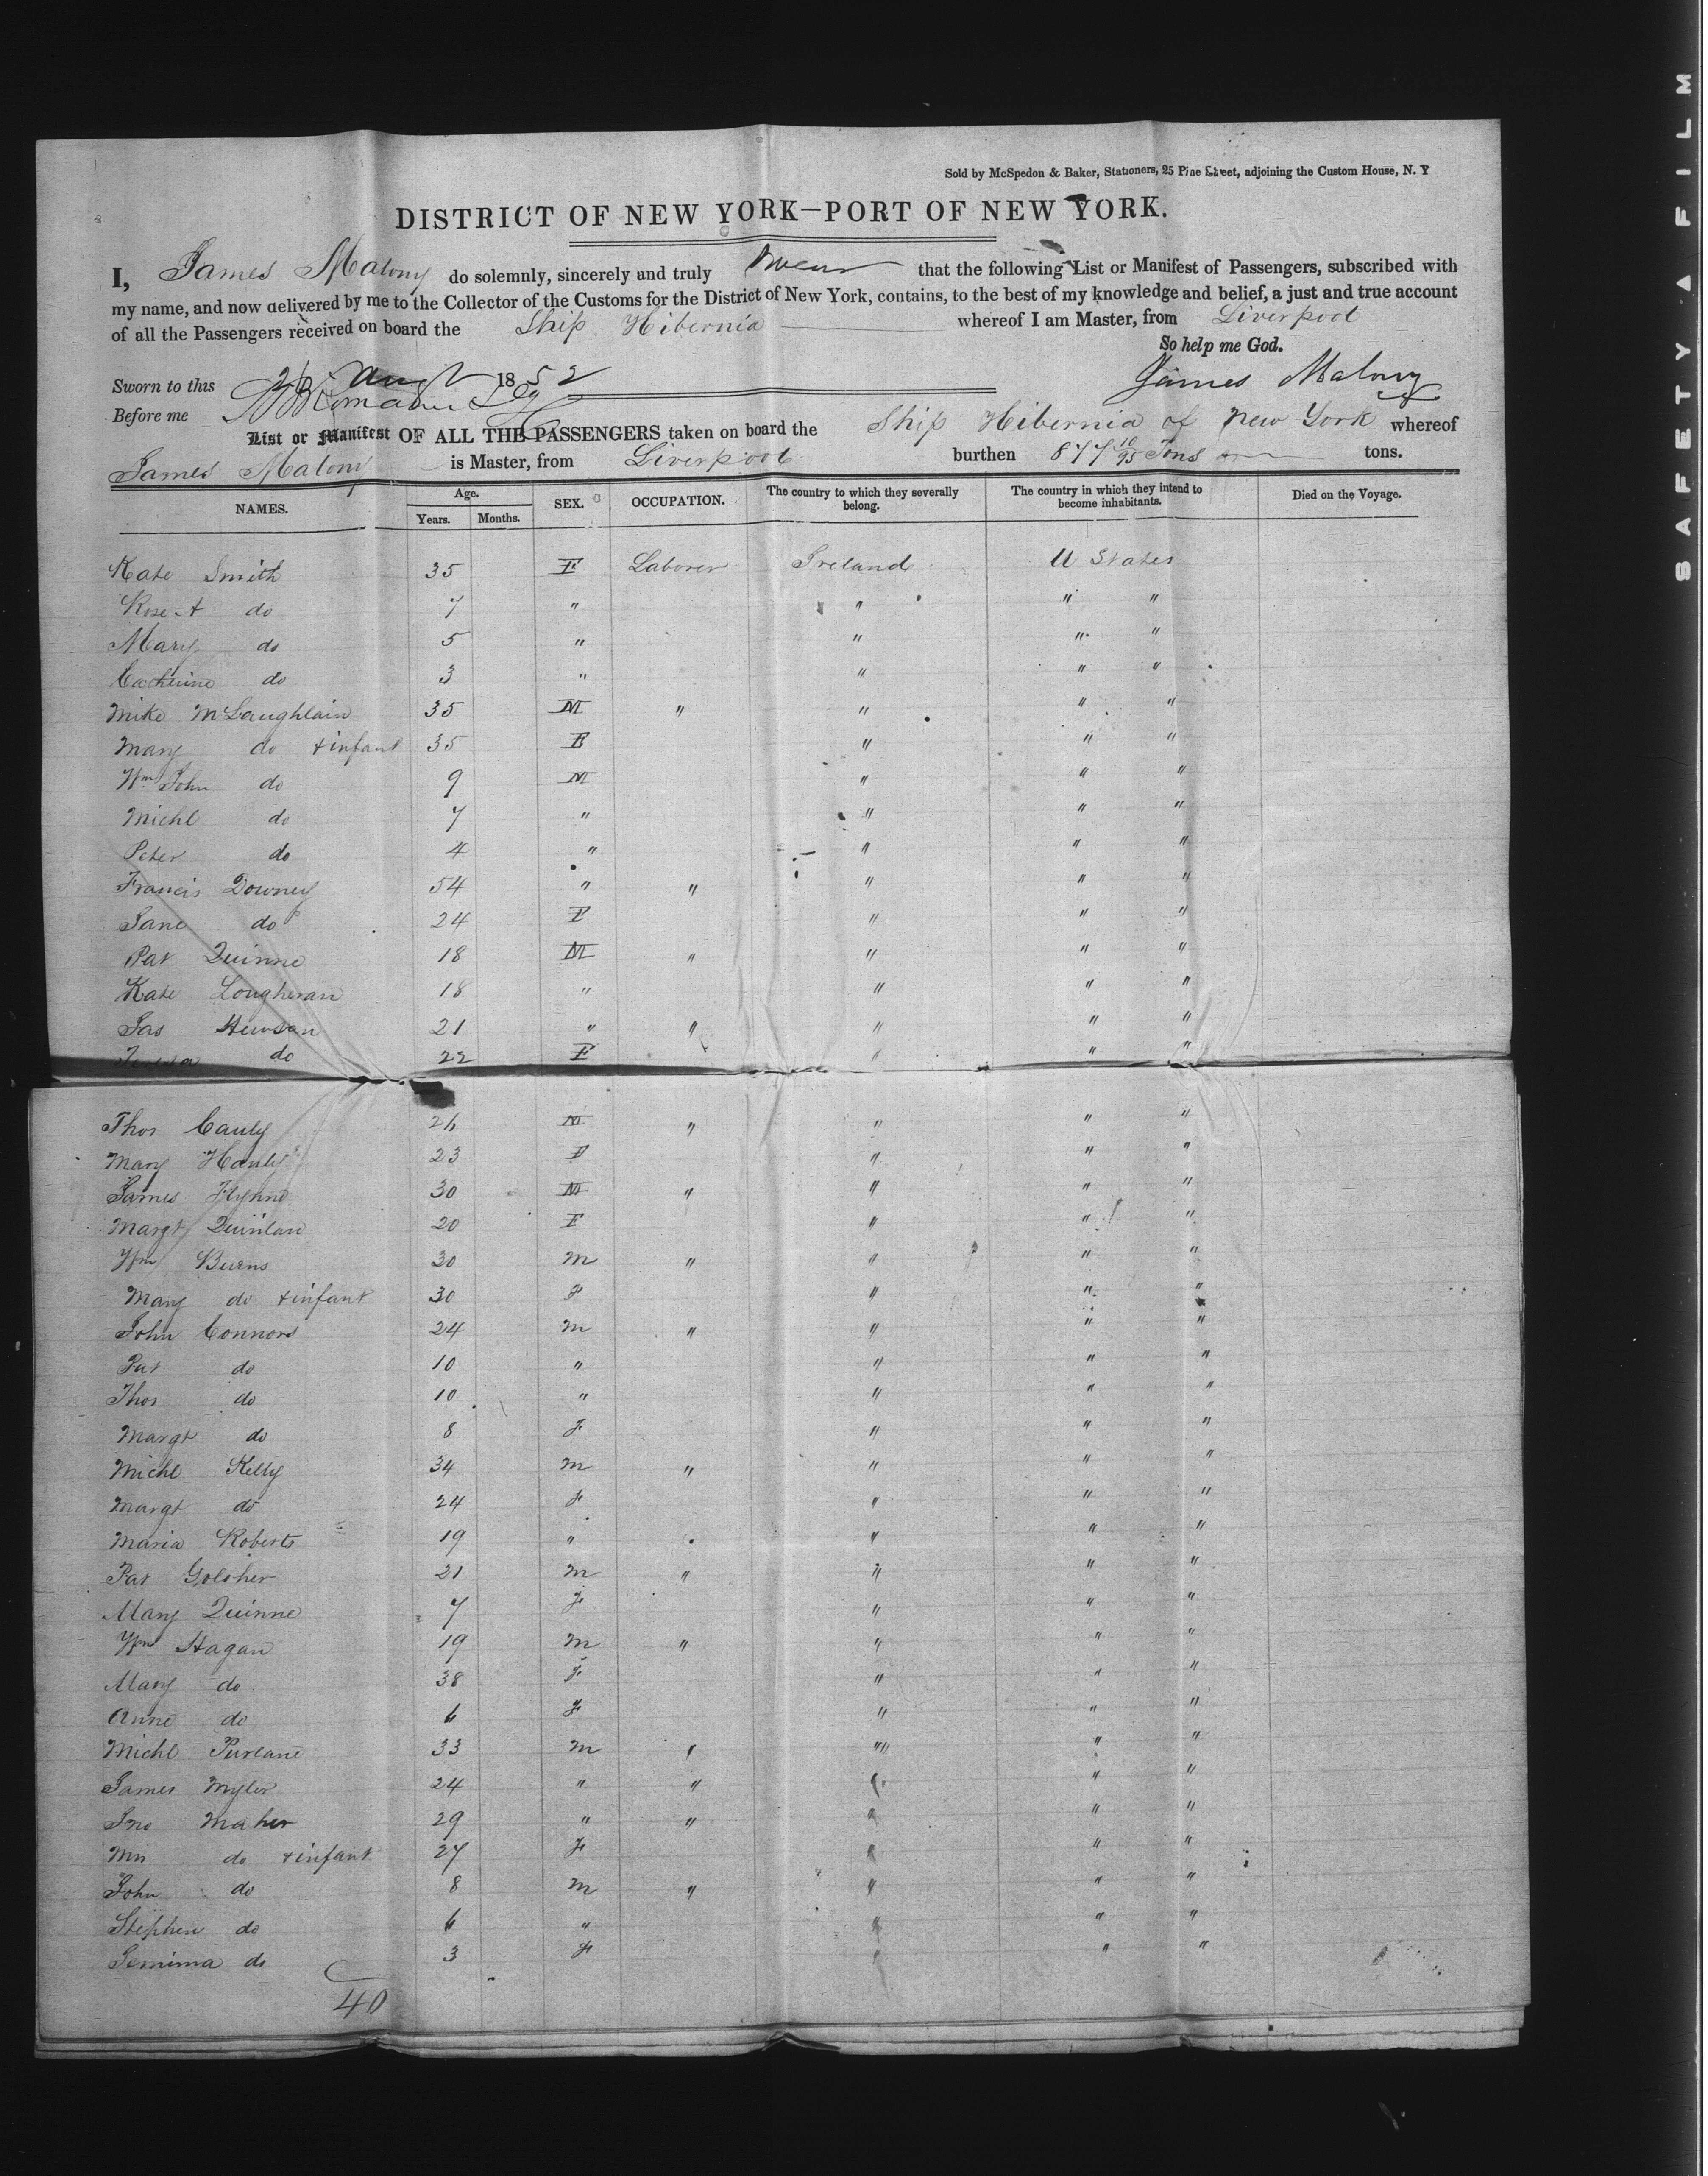 SAFETY ▲ FILM
Sold by McSpedon & Baker, Stationers, 25 Pine Street, adjoining the Custom House, N. Y
DISTRICT OF NEW YORK—PORT OF NEW YORK.
I, James Malony do solemnly, sincerely and truly swear that the following List or Manifest of Passengers, subscribed with
my name, and now delivered by me to the Collector of the Customs for the District of New York, contains, to the best of my knowledge and belief, a just and true account
of all the Passengers received on board the Ship Hibernia whereof I am Master, from Liverpool
So help me God.
Sworn to this 26 Augt 1852 James Malony
Before me
List or Manifest OF ALL THE PASSENGERS taken on board the Ship Hibernia of New York whereof
James Malony is Master, from Liverpool burthen 877 10/95 Tons tons.
NAMES. Age. Years. Months. SEX. OCCUPATION. The country to which they severally belong. The country in which they intend to become inhabitants. Died on the Voyage.
Kate Smith 35 F Laborer Ireland U States
Rose A do 7 " " " "
Mary do 5 " " " "
Catherine do 3 " " " "
Mike McLaughlain 35 M " " " "
Mary do + infant 35 F " " "
Wm John do 9 M " " "
Michl do 7 " " " "
Peter do 4 " " " "
Francis Downey 54 " " " " "
Jane do 24 F " " "
Pat Quinne 18 M " " " "
Kate Lougheran 18 " " " "
Jas Hewson 21 " " " " "
Teresa do 22 F " " "
Thos Cauly 26 M " " " "
Mary Hauly 23 F " " "
James Flynne 30 M " " " "
Margt Quinlan 20 F " " "
Wm Burns 30 M " " " "
Mary do + infant 30 F " " "
John Connors 24 M " " " "
Pat do 10 " " " "
Thos do 10 " " " "
Margt do 8 F " " "
Michl Kelly 34 M " " " "
Margt do 24 F " " "
Maria Roberts 19 " " " "
Pat Golsher 21 M " " " "
Mary Quinne 7 F " " "
Wm Hagan 19 M " " " "
Mary do 38 F " " "
Anne do 6 F " " "
Michl Purcane 33 M " " " "
James Myler 24 " " " "
Jno Maher 29 " " " " "
Mrs do + infant 27 F " " "
John do 8 M " " " "
Stephen do 6 " " " "
Jemima do 3 F " " "
40